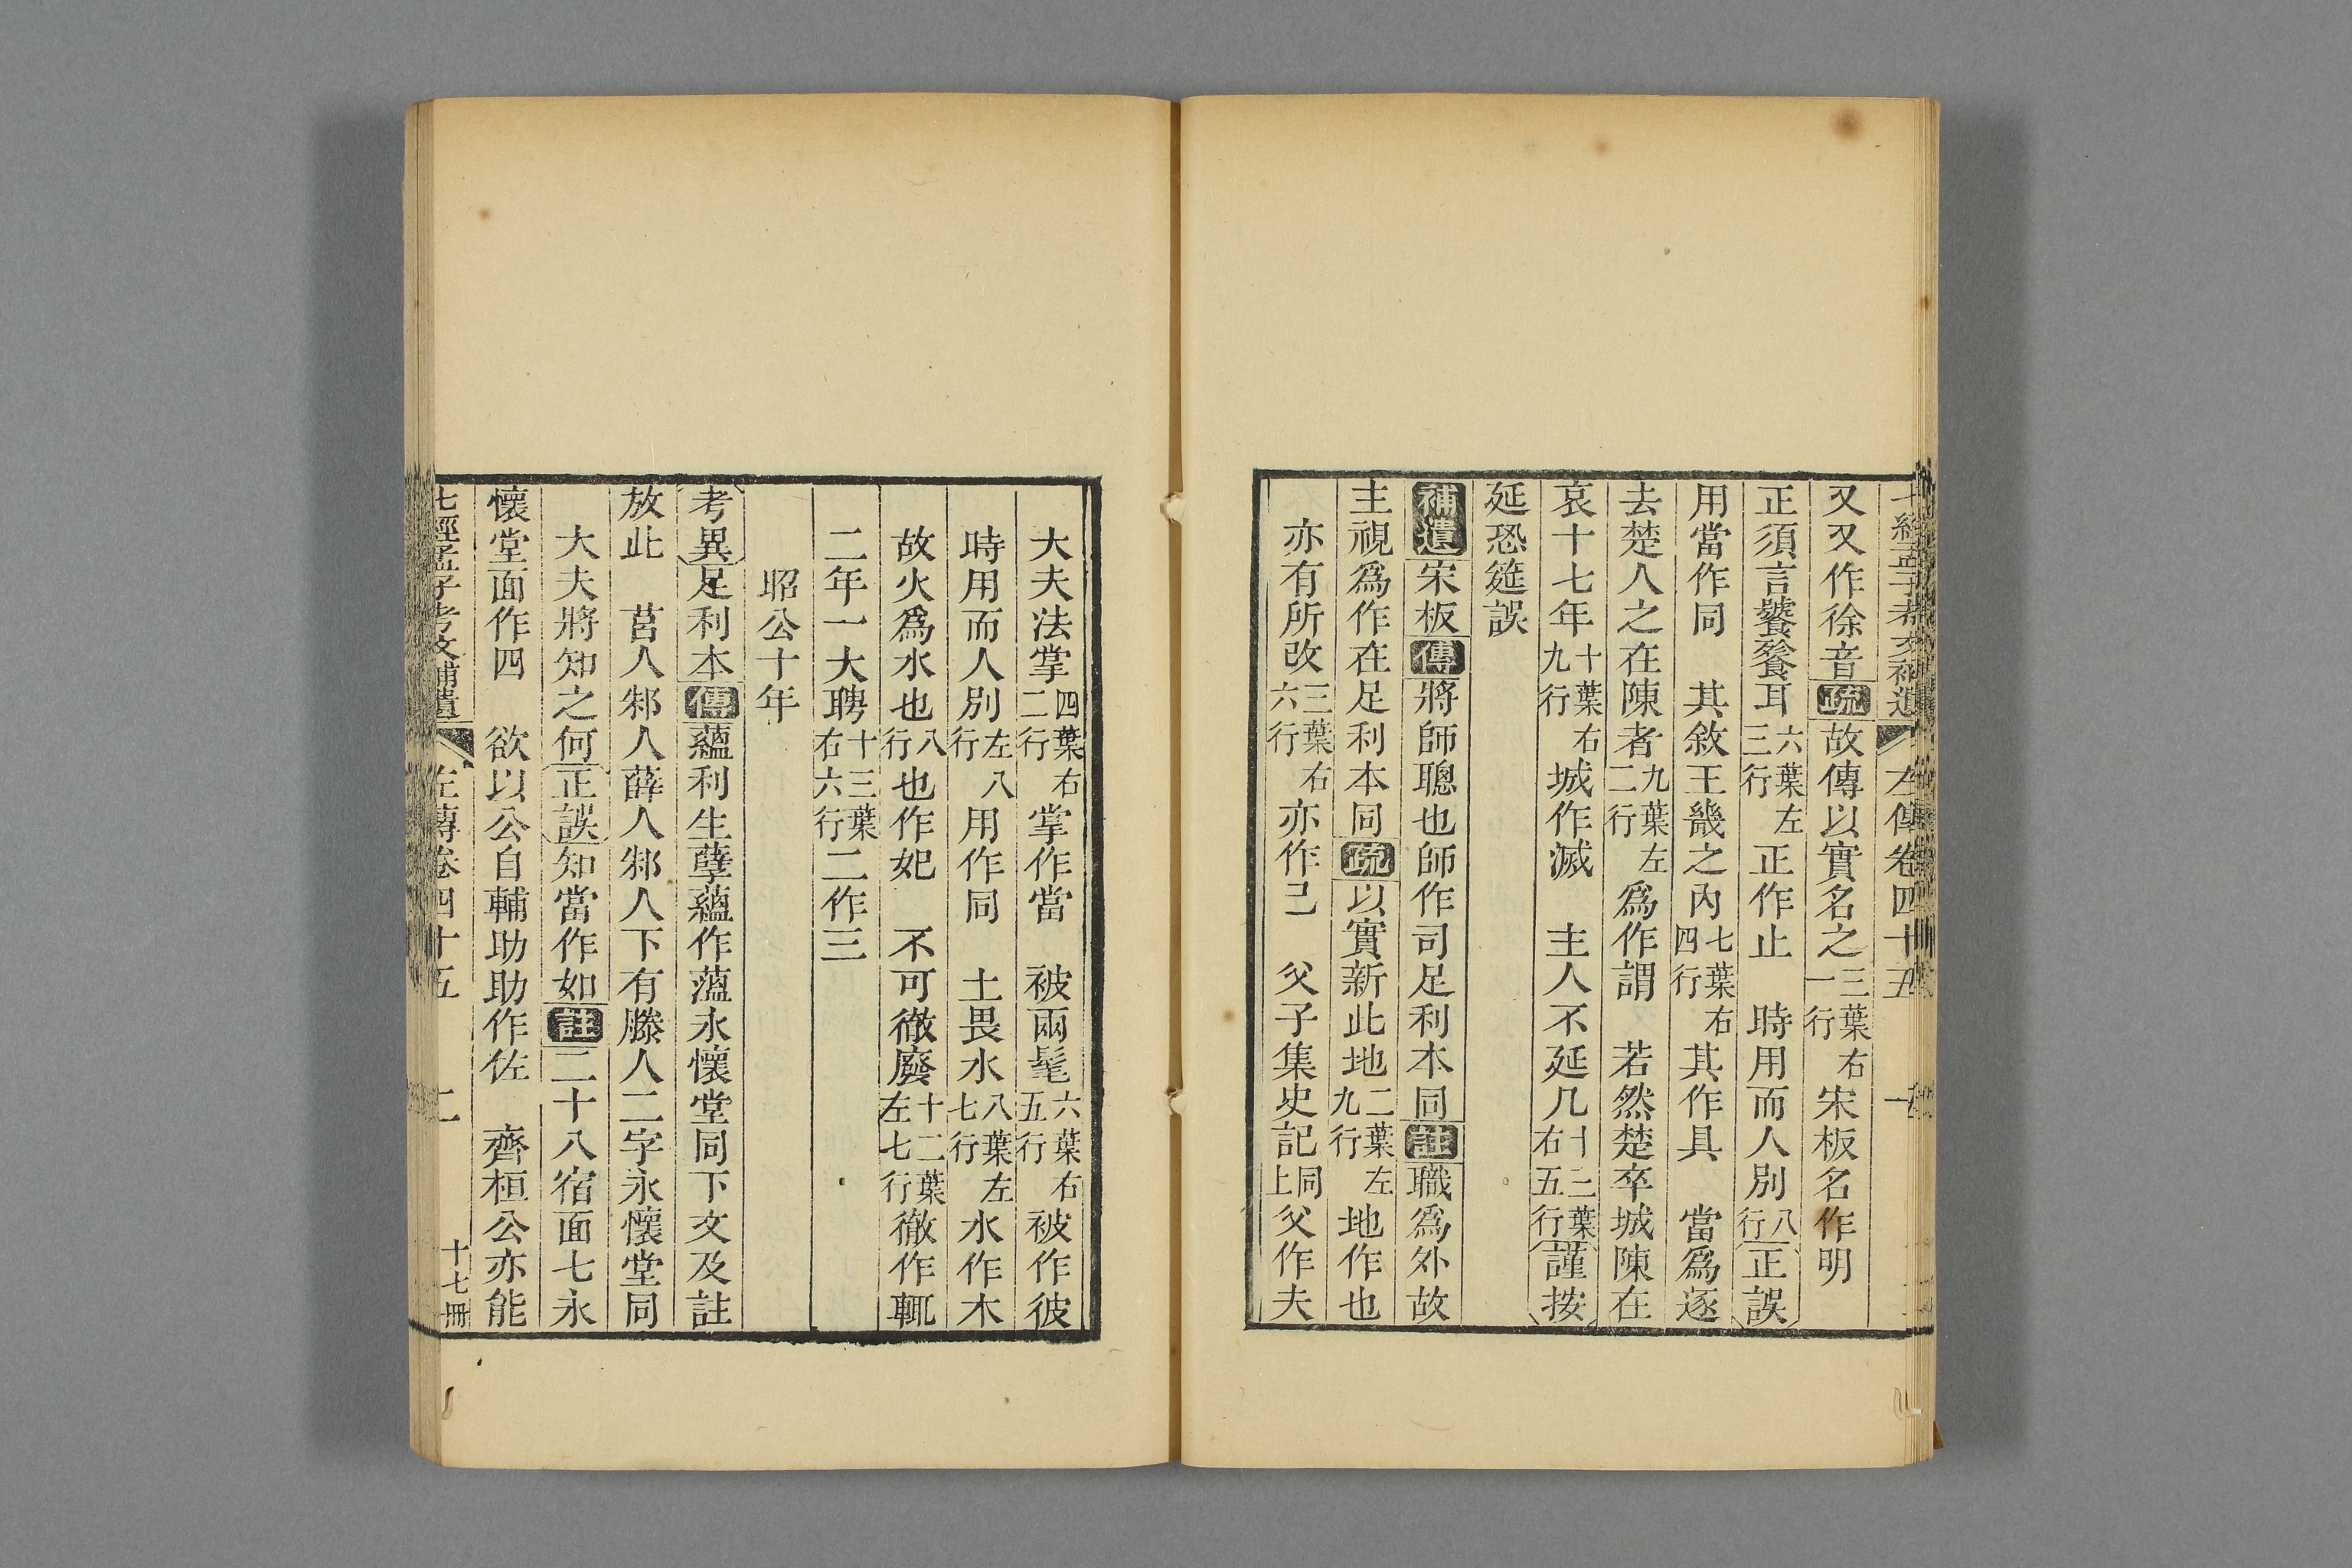 七經孟子考文補遺 左傳卷四十五 一
又又作徐音疏故傳以實名之三葉右一行宋板名作明
正須言饔餐耳六葉左三行正作止 時用而人別八行正誤
用當作同 其敘王畿之內七葉右四行其作具 當爲逐
去楚人之在陳者九葉左二行爲作謂 若然楚卒城陳在
哀十七年十葉右九行城作滅 主人不延几十二葉右五行謹按
延恐筵誤
補遺宋板傳將師聰也師作司足利本同註職爲外故
主視爲作在足利本同疏以實新此地二葉左九行地作也
亦有所改三葉右六行亦作己 父子集史記同上父作夫
大夫法掌四葉右二行掌作當 被兩髦六葉右五行被作彼
時用而人別左八行用作同 土畏水八葉左七行水作木
故火爲水也八行也作妃 不可徹廢十二葉左七行徹作輒
二年一大聘十三葉右六行二作三
昭公十年
考異足利本傳蘊利生孽蘊作薀永懷堂同下文及註
放此 莒人邾人薛人邾人下有滕人二字永懷堂同
大夫將知之何正誤知當作如註二十八宿面七永
懷堂面作四 欲以公自輔助助作佐 齊桓公亦能
七經孟子考文補遺 左傳卷四十五 二 十七冊